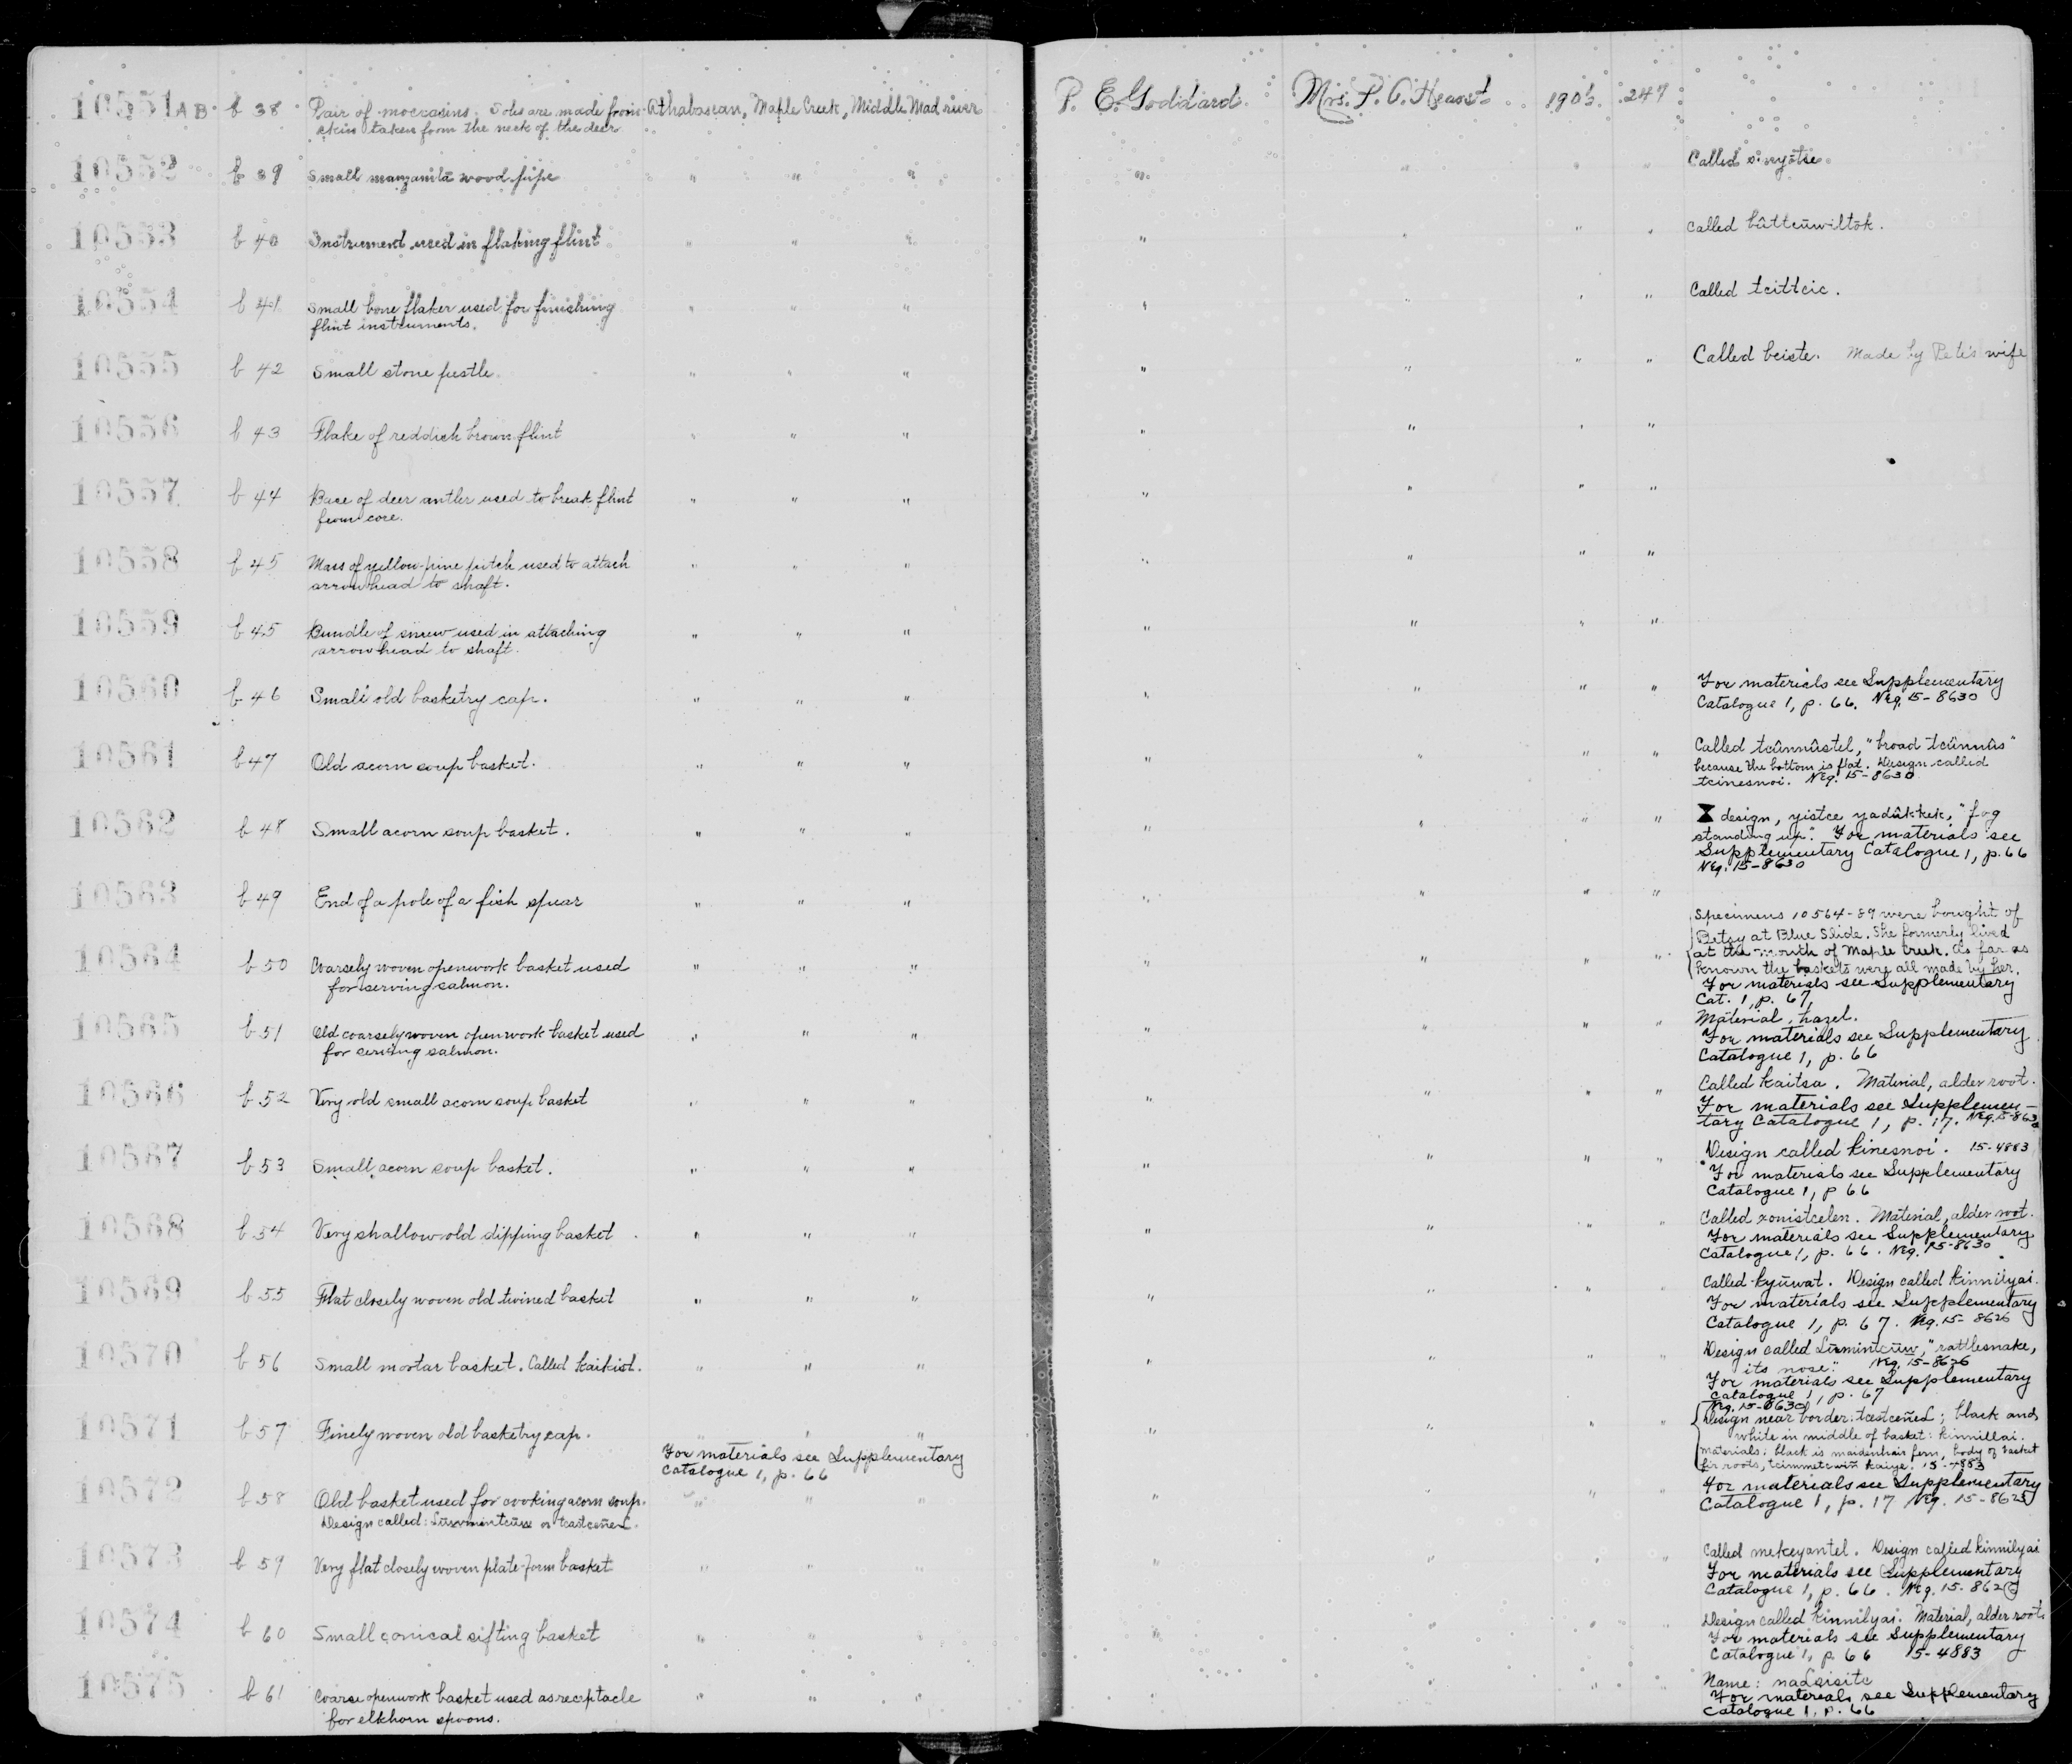 10551AB b 38 Pair of moccasins. Soles are made from Athabascan, Maple Creek, Middle Mad river P. E. Goddard. Mrs. P. A. Hearst. 247
skin taken from the neck of the deer.
10552 b 39 Small manzanita wood pipe " " " " " " " Called
10553 b 40 Instrument used in flaking flint " " " " " " " Called bûttcûwiltōk.
10554 b 41 Small bone flaker used for finishing " " " " " " " Called tcittcic.
flint instruments.
10555 b 42 Small stone pestle " " " " " " " Called bciste. Made by Pete's wife
10556 b 43 Flake of reddish brown flint " " " " " " "
10557 b 44 Base of deer antler used to break flint " " " " " " "
from core.
10558 b 45 Mass of yellow-pine pitch used to attach " " " " " " "
arrowhead to shaft.
10559 b 45 Bundle of sinew used in attaching " " " " " " "
arrowhead to shaft.
10560 b 46 Small old basketry cap. " " " " " " " For materials see Supplementary
Catalogue 1, p. 66. Neg. 15-8630
10561 b 47 Old acorn soup basket. " " " " " " " Called tcûnnûstel, "broad tcûnnûs"
because the bottom is flat. Design called
tcinesnoi. Neg. 15-8630
10562 b 48 Small acorn soup basket. " " " " " " " design, yistce yadûkkek, "fog
standing up". For materials see
Supplementary Catalogue 1, p. 66
Neg. 15-8630
10563 b 49 End of a pole of a fish spear " " " " " " "
Specimens 10564-89 were bought of
Betsy at Blue Slide. She formerly lived
10564 b 50 Coarsely woven openwork basket used " " " " " " " at the mouth of Maple Creek. As far as
for serving salmon. known the baskets were all made by her.
For materials see Supplementary
Cat. 1, p. 67,
10565 b 51 Old coarsely woven openwork basket used " " " " " " " Material, hazel.
for serving salmon. For materials see Supplementary
Catalogue 1, p. 66
10566 b 52 Very old small acorn soup basket " " " " " " " Called kaitsa. Material, alder root.
For materials see Supplemen-
tary Catalogue 1, p. 17. Neg. 15-8630
10567 b 53 Small acorn soup basket. " " " " " " " Design called kinesnoi. 15-4883
For materials see Supplementary
Catalogue 1, p 66
10568 b 54 Very shallow old dipping basket " " " " " " " Called xonistcelen. Material, alder root.
For materials see Supplementary
Catalogue 1, p. 66. Neg. 15-8630
10569 b 55 Flat closely woven old twined basket " " " " " " " Called kyûwat. Design called kinnilyai.
For materials see Supplementary
Catalogue 1, p. 67. Neg. 15-8626
10570 b 56 Small mortar basket. Called kaikist. " " " " " " " Design called "rattlesnake,
its nose". Neg. 15-8626
For materials see Supplementary
Catalogue 1, p. 67
Neg. 15-8630
10571 b 57 Finely woven old basketry cap. " " " " " " " Design near border: black and
For materials see Supplementary white in middle of basket: kinnillai.
Catalogue 1, p. 66 Materials: black is maidenhair fern, body of basket
fir roots, kaiye. 15-4883
10572 b 58 Old basket used for cooking acorn soup. " " " " " " " For materials see Supplementary
Design called: Catalogue 1, p. 17 Neg. 15-8625
10573 b 59 Very flat closely woven plate-form basket " " " " " " " Called mekeyantel. Design called kinnilyai
For materials see Supplementary
Catalogue 1, p. 66. Neg. 15-8626
10574 b 60 Small conical sifting basket " " " " " " " Design called kinnilyai. Material, alder root.
For materials see Supplementary
Catalogue 1, p. 66 15-4883
10575 b 61 Coarse openwork basket used as receptacle " " " " " " " Name:
for elkhorn spoons. For materials see Supplementary
Catalogue 1, p. 66